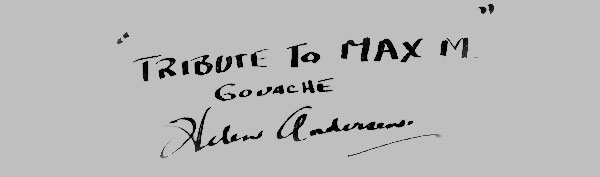 "TRIBUTE TO MAX M."
GOUACHE
Helen Andersen.